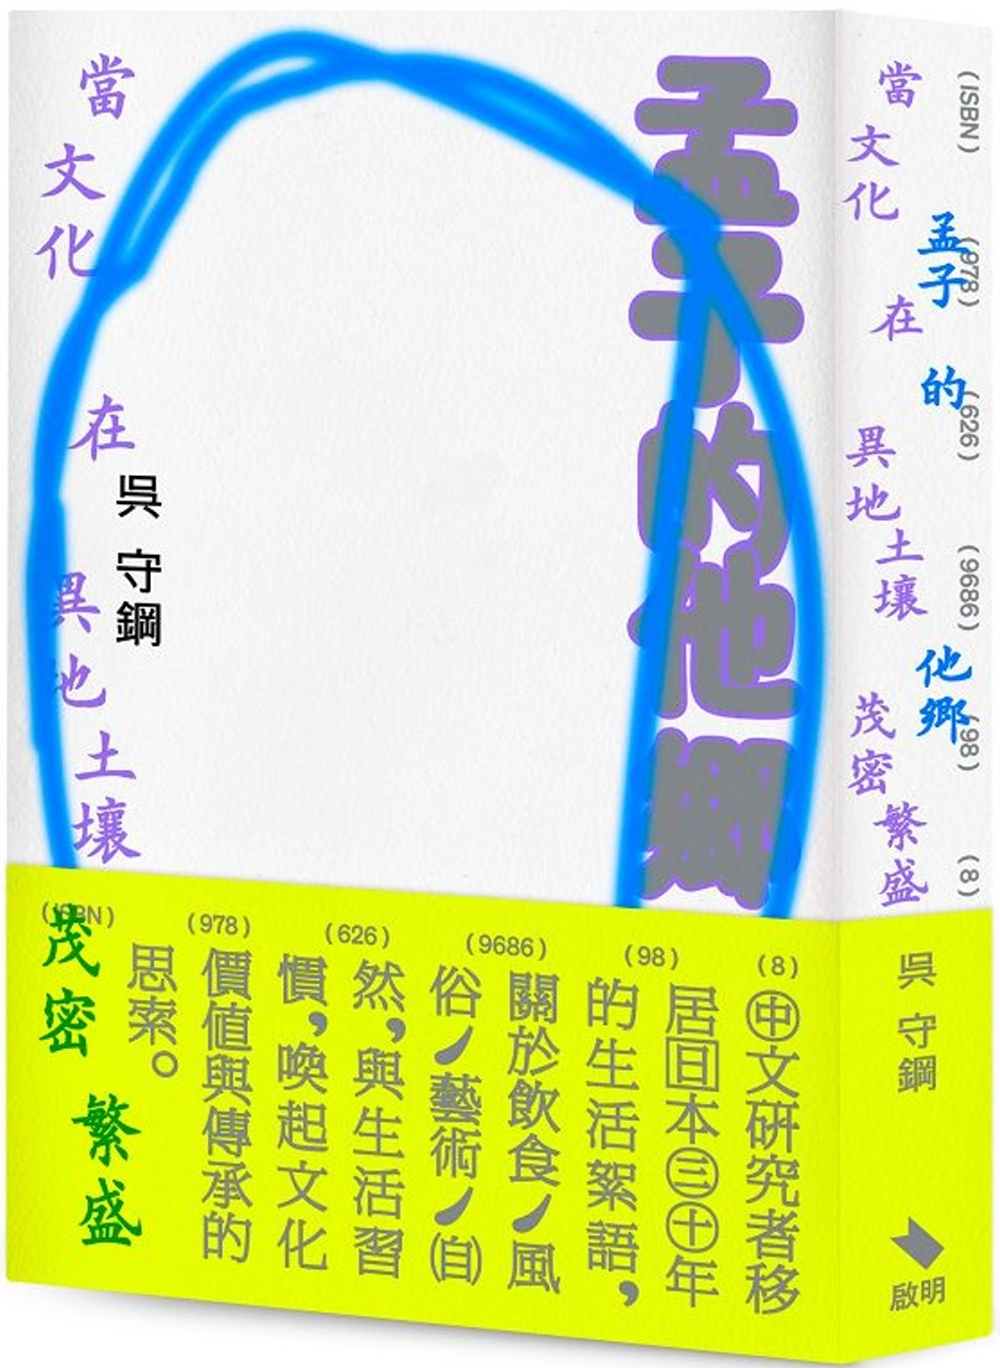 孟子的他鄉
當文化
在
異地土壤
茂密
繁盛
吳守鋼
(ISBN) (978) (626) (9686) (98) (8)
中文研究者移
居日本三十年
的生活絮語，
關於飲食／風
俗／藝術／(自)
然，與生活習
慣，喚起文化
價值與傳承的
思索。
(ISBN) (978) (626) (9686) (98) (8)
孟子的他鄉
當文化
在
異地土壤
茂密繁盛
吳守鋼
啟明